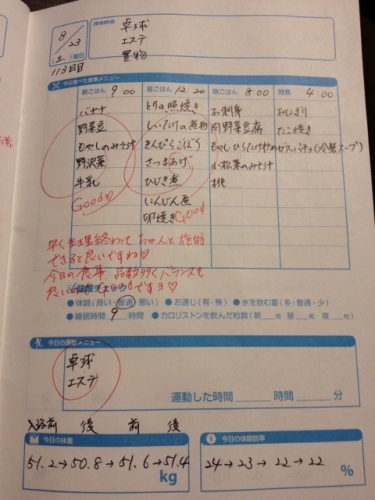 8/23
(土)曜日
113日目
memo
卓球
エステ
置物
今日食べた食事メニュー
朝ごはん 9:00
昼ごはん 12:20
夜ごはん 8:00
間食 4:00
バナナ
野菜豆
もやしのみそ汁
野沢菜
牛乳
Good
とりの照焼き
しいたけの煮物
きんぴらごぼう
さつまあげ
ひじき煮
にんじん煮
卵焼き
Good
お刺身
肉野菜豆腐
もやしひらたけ炒め
小松菜のみそ汁
桃
おにぎり
たこ焼き
ガスパチョ(冷製スープ)
早く生理終わって ちゃんと施術
できると良いですね
今日の食事、品数多くバランスも
良い
ですョ
●体調(良い・普通・悪い) ●お通じ(有・無) ●水を飲む量(多・普通・少)
●睡眠時間 9 時間 ●カロリストンを飲んだ粒数(朝 粒 昼 粒 夜 )
今日の運動メニュー
卓球
エステ
運動した時間 時間 分
入浴前 後 前 後
今日の体重
51.2→50.8→51.6→51.4
kg
今日の体脂肪率
24→23→22→22
%